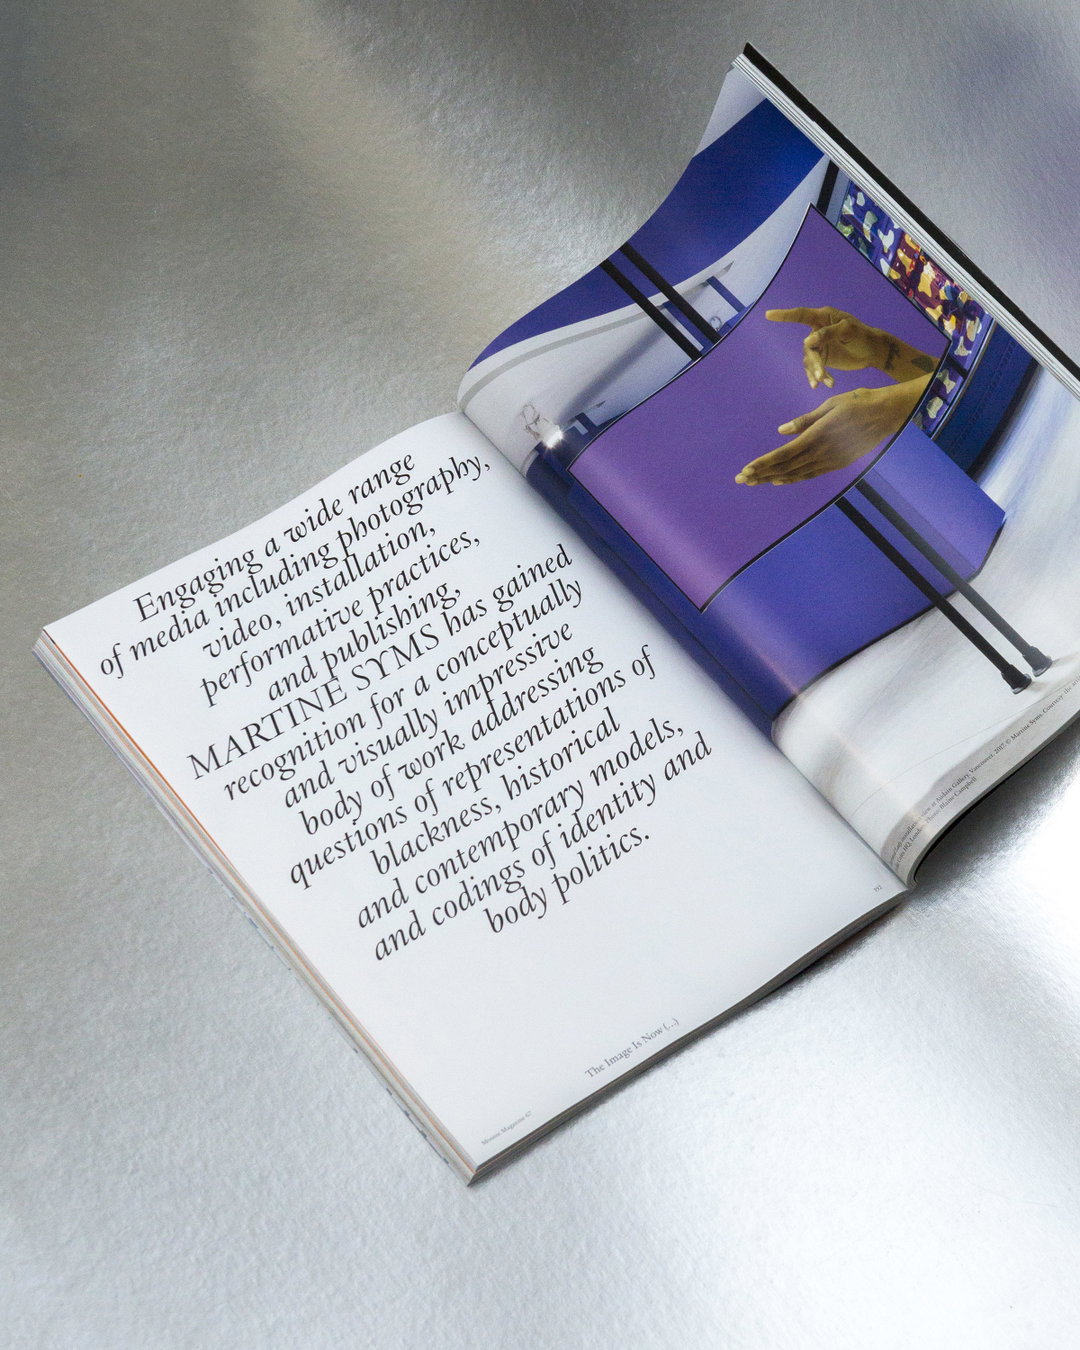 Engaging a wide range
of media including photography,
video, installation,
performative practices,
and publishing,
MARTINE SYMS has gained
recognition for a conceptually
and visually impressive
body of work addressing
questions of representations of
blackness, historical
and contemporary models,
and codings of identity and
body politics.
192
The Image Is Now (...)
Mousse Magazine 67
view at Audain Gallery, Vancouver, 2017. © Martine Syms. Courtesy: the
HQ, London. Photo: Blaine Campbell